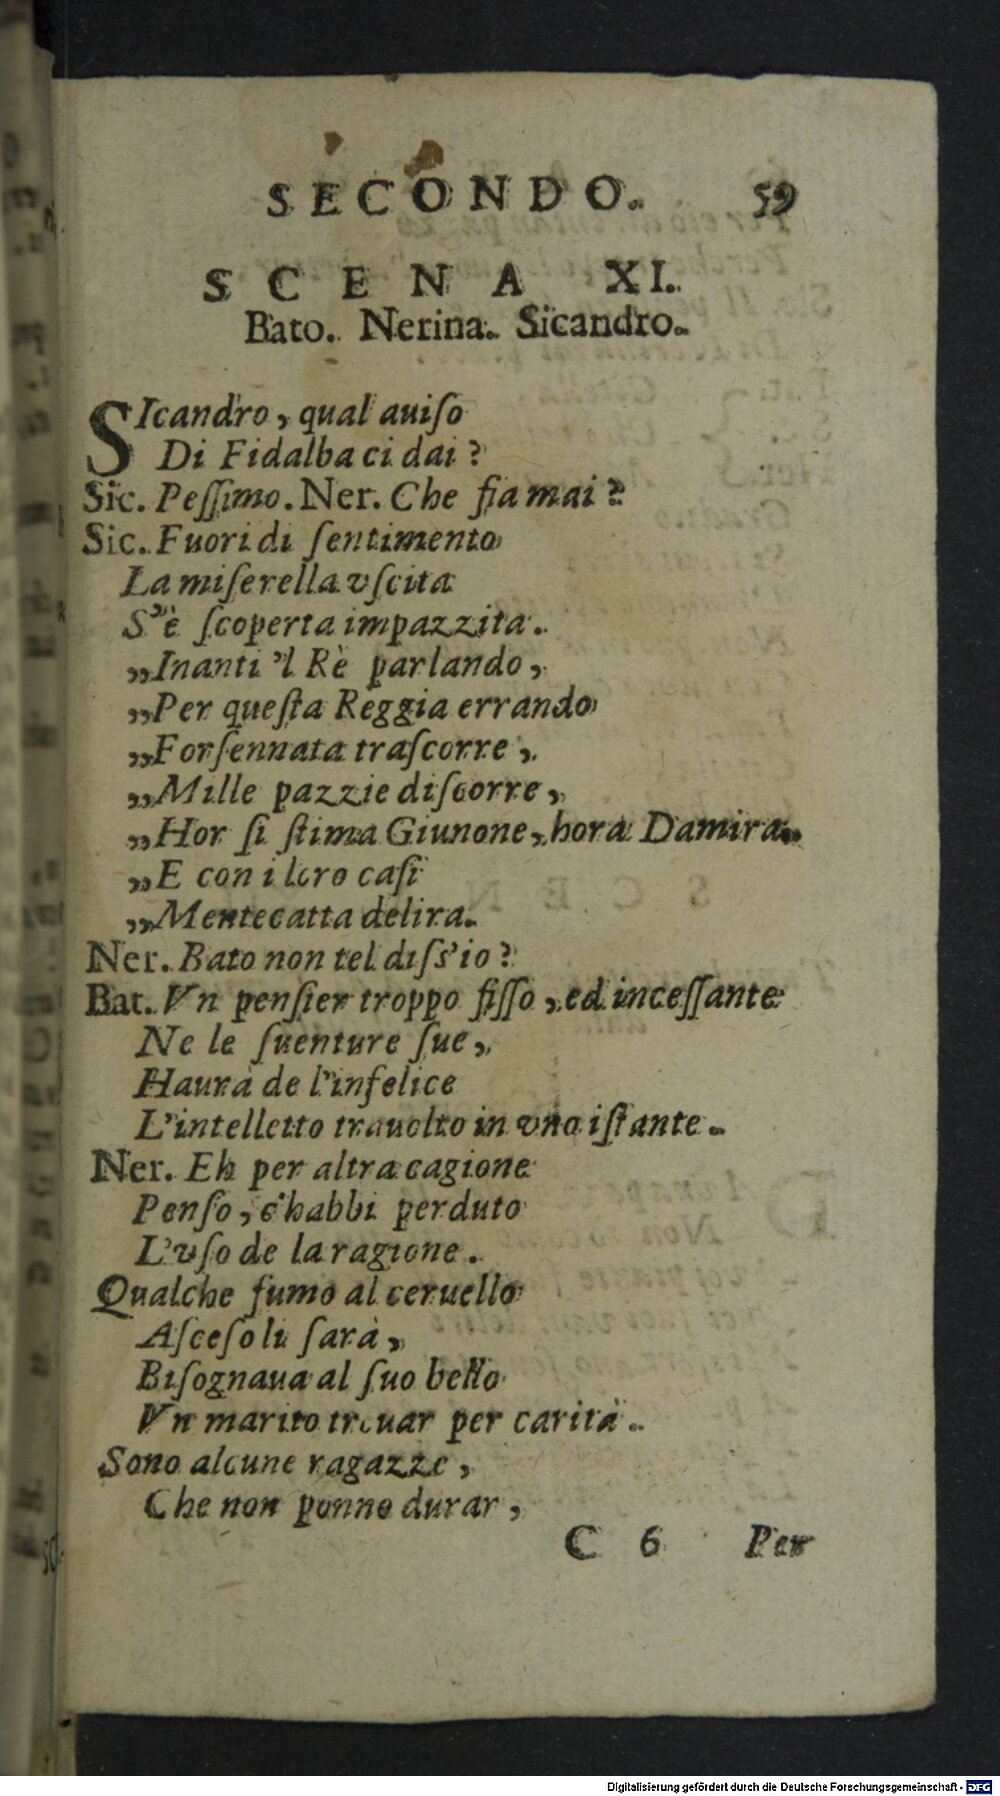 SECONDO. 59
SCENA XI.
Bato. Nerina. Sicandro.
SIcandro, qual auiſo
Di Fidalba ci dai?
Sic. Peſſimo. Ner. Che fia mai?
Sic. Fuori di ſentimento
La miſerella vſcita
S'è ſcoperta impazzita.
„Inanti 'l Rè parlando,
„Per queſta Reggia errando
„Forſennata traſcorre,
„Mille pazzie diſcorre,
„Hor ſi ſtima Giunone, hora Damira.
„E con i loro caſi
„Mentecatta delira.
Ner. Bato non tel diſs'io?
Bat. Vn penſier troppo fiſſo, ed inceſſante
Ne le ſuenture ſue,
Haurà de l'infelice
L'intelletto trauolto in vno iſtante.
Ner. Eh per altra cagione
Penſo, c'habbi perduto
L'vſo de la ragione.
Qualche fumo al ceruello
Aſceſo li ſarà,
Biſognaua al ſuo bello
Vn marito trouar per carità.
Sono alcune ragazze,
Che non ponno durar,
C 6 Per
Digitalisierung gefördert durch die Deutsche Forschungsgemeinschaft - DFG